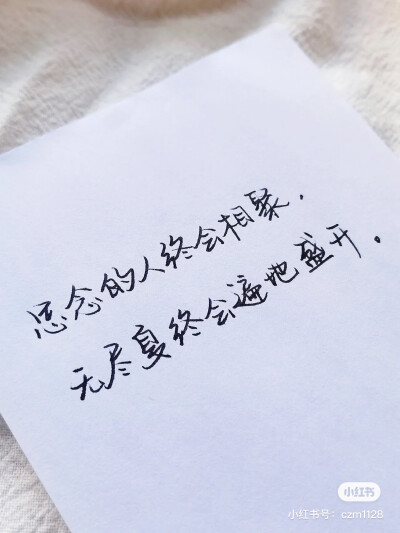 思念的人终会相聚.
无尽夏终会遍地盛开.
小红书
小红书号：czm1128